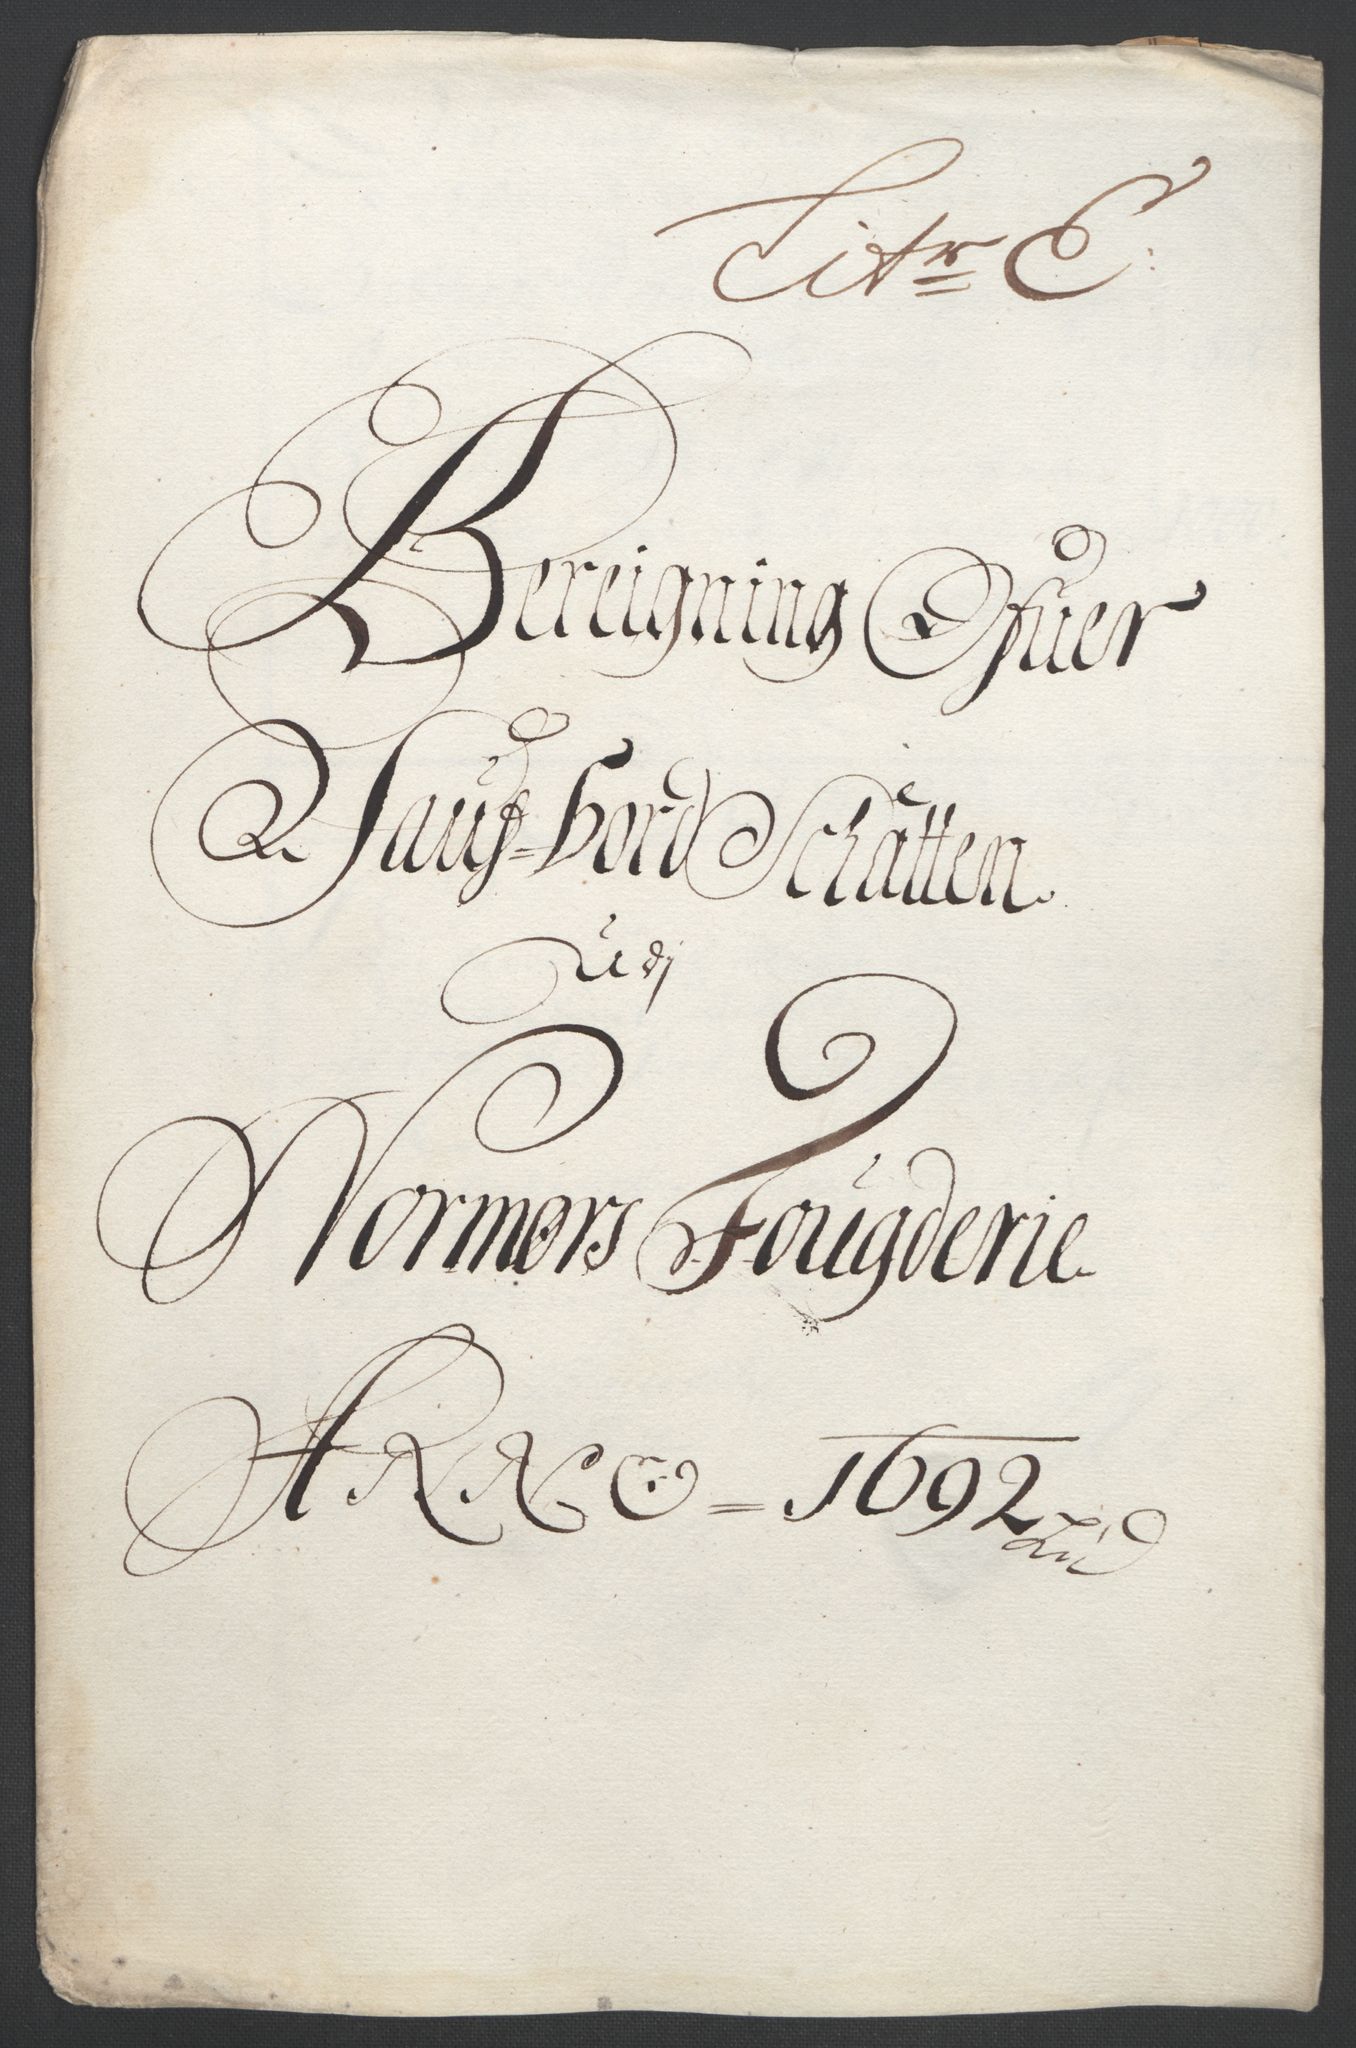 Litr C.
Bereigning Ofuer
Saug-bord Schatten
Udj
Normørs Fougderie
ANNO = 1692